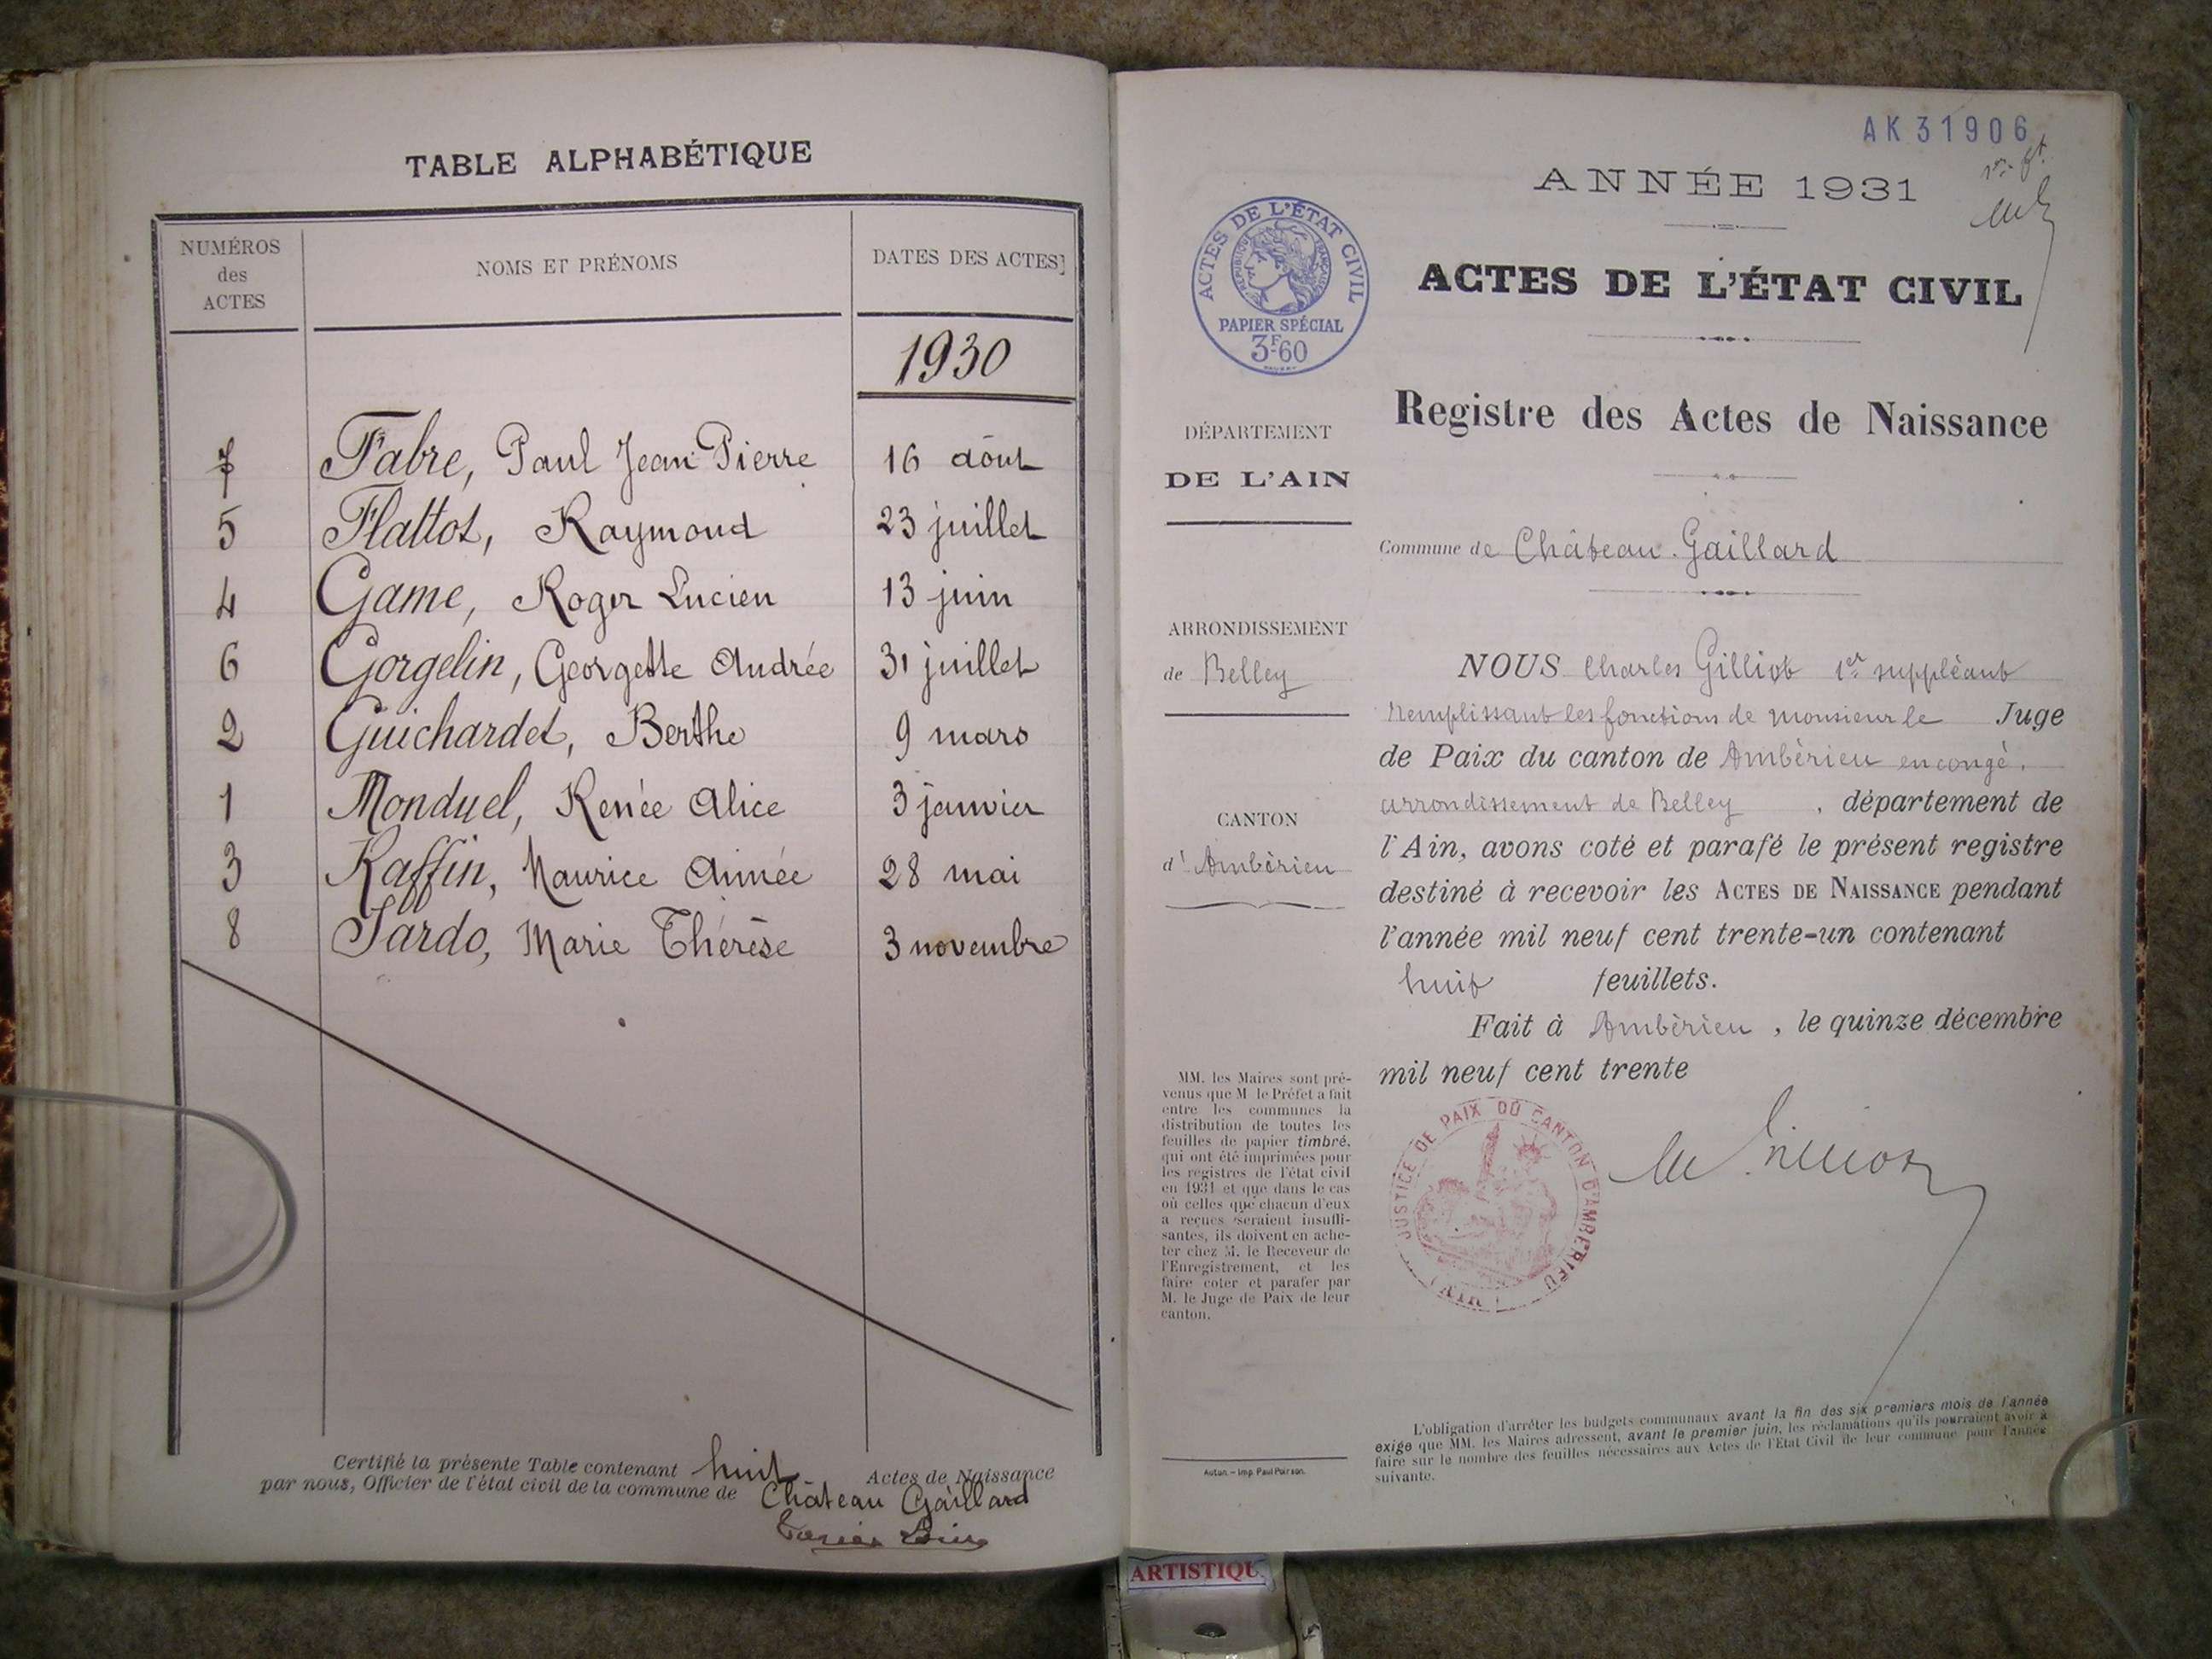 TABLE ALPHABÉTIQUE
NUMÉROS
des
ACTES
NOMS ET PRÉNOMS
DATES DES ACTES
1930
7 Fabre, Paul Jean Pierre 16 août
5 Flattot, Raymond 23 juillet
4 Game, Roger Lucien 13 juin
6 Gorgelin, Georgette Andrée 31 juillet
2 Guichardet, Berthe 9 mars
1 Monduel, Renée Alice 3 janvier
3 Raffin, Maurice Aimée 28 mai
8 Sardo, Marie Thérèse 3 novembre
Certifié la présente Table contenant huit Actes de Naissance
par nous, Officier de l'état civil de la commune de Château Gaillard
AK 31906
ANNÉE 1931
ACTES DE L'ÉTAT CIVIL
RÉPUBLIQUE FRANÇAISE
PAPIER SPÉCIAL
3F60
ACTES DE L'ÉTAT CIVIL
Registre des Actes de Naissance
DÉPARTEMENT
DE L'AIN
Commune de Château-Gaillard
ARRONDISSEMENT
de Belley
CANTON
d'Ambérieu
NOUS Charles Gilliot 1er suppléant
remplissant les fonctions de monsieur le Juge
de Paix du canton de Ambérieu en congé.
arrondissement de Belley, département de
l'Ain, avons coté et parafé le présent registre
destiné à recevoir les ACTES DE NAISSANCE pendant
l'année mil neuf cent trente-un contenant
huit feuillets.
Fait à Ambérieu, le quinze décembre
mil neuf cent trente
JUSTICE DE PAIX DU CANTON D'AMBERIEU
(AIN)
MM. les Maires sont pré-
venus que M le Préfet a fait
entre les communes la
distribution de toutes les
feuilles de papier timbré,
qui ont été imprimées pour
les registres de l'état civil
en 1931 et que dans le cas
où celles que chacun d'eux
a reçues seraient insuffi-
santes, ils doivent en ache-
ter chez M. le Receveur de
l'Enregistrement, et les
faire coter et parafer par
M. le Juge de Paix de leur
canton.
Autun. — Imp. Paul Poirson.
L'obligation d'arrêter les budgets communaux avant la fin des six premiers mois de l'année
exige que MM. les Maires adressent, avant le premier juin, les réclamations qu'ils pourraient avoir à
faire sur le nombre des feuilles nécessaires aux Actes de l'Etat Civil de leur commune pour l'année
suivante.
ARTISTIQU